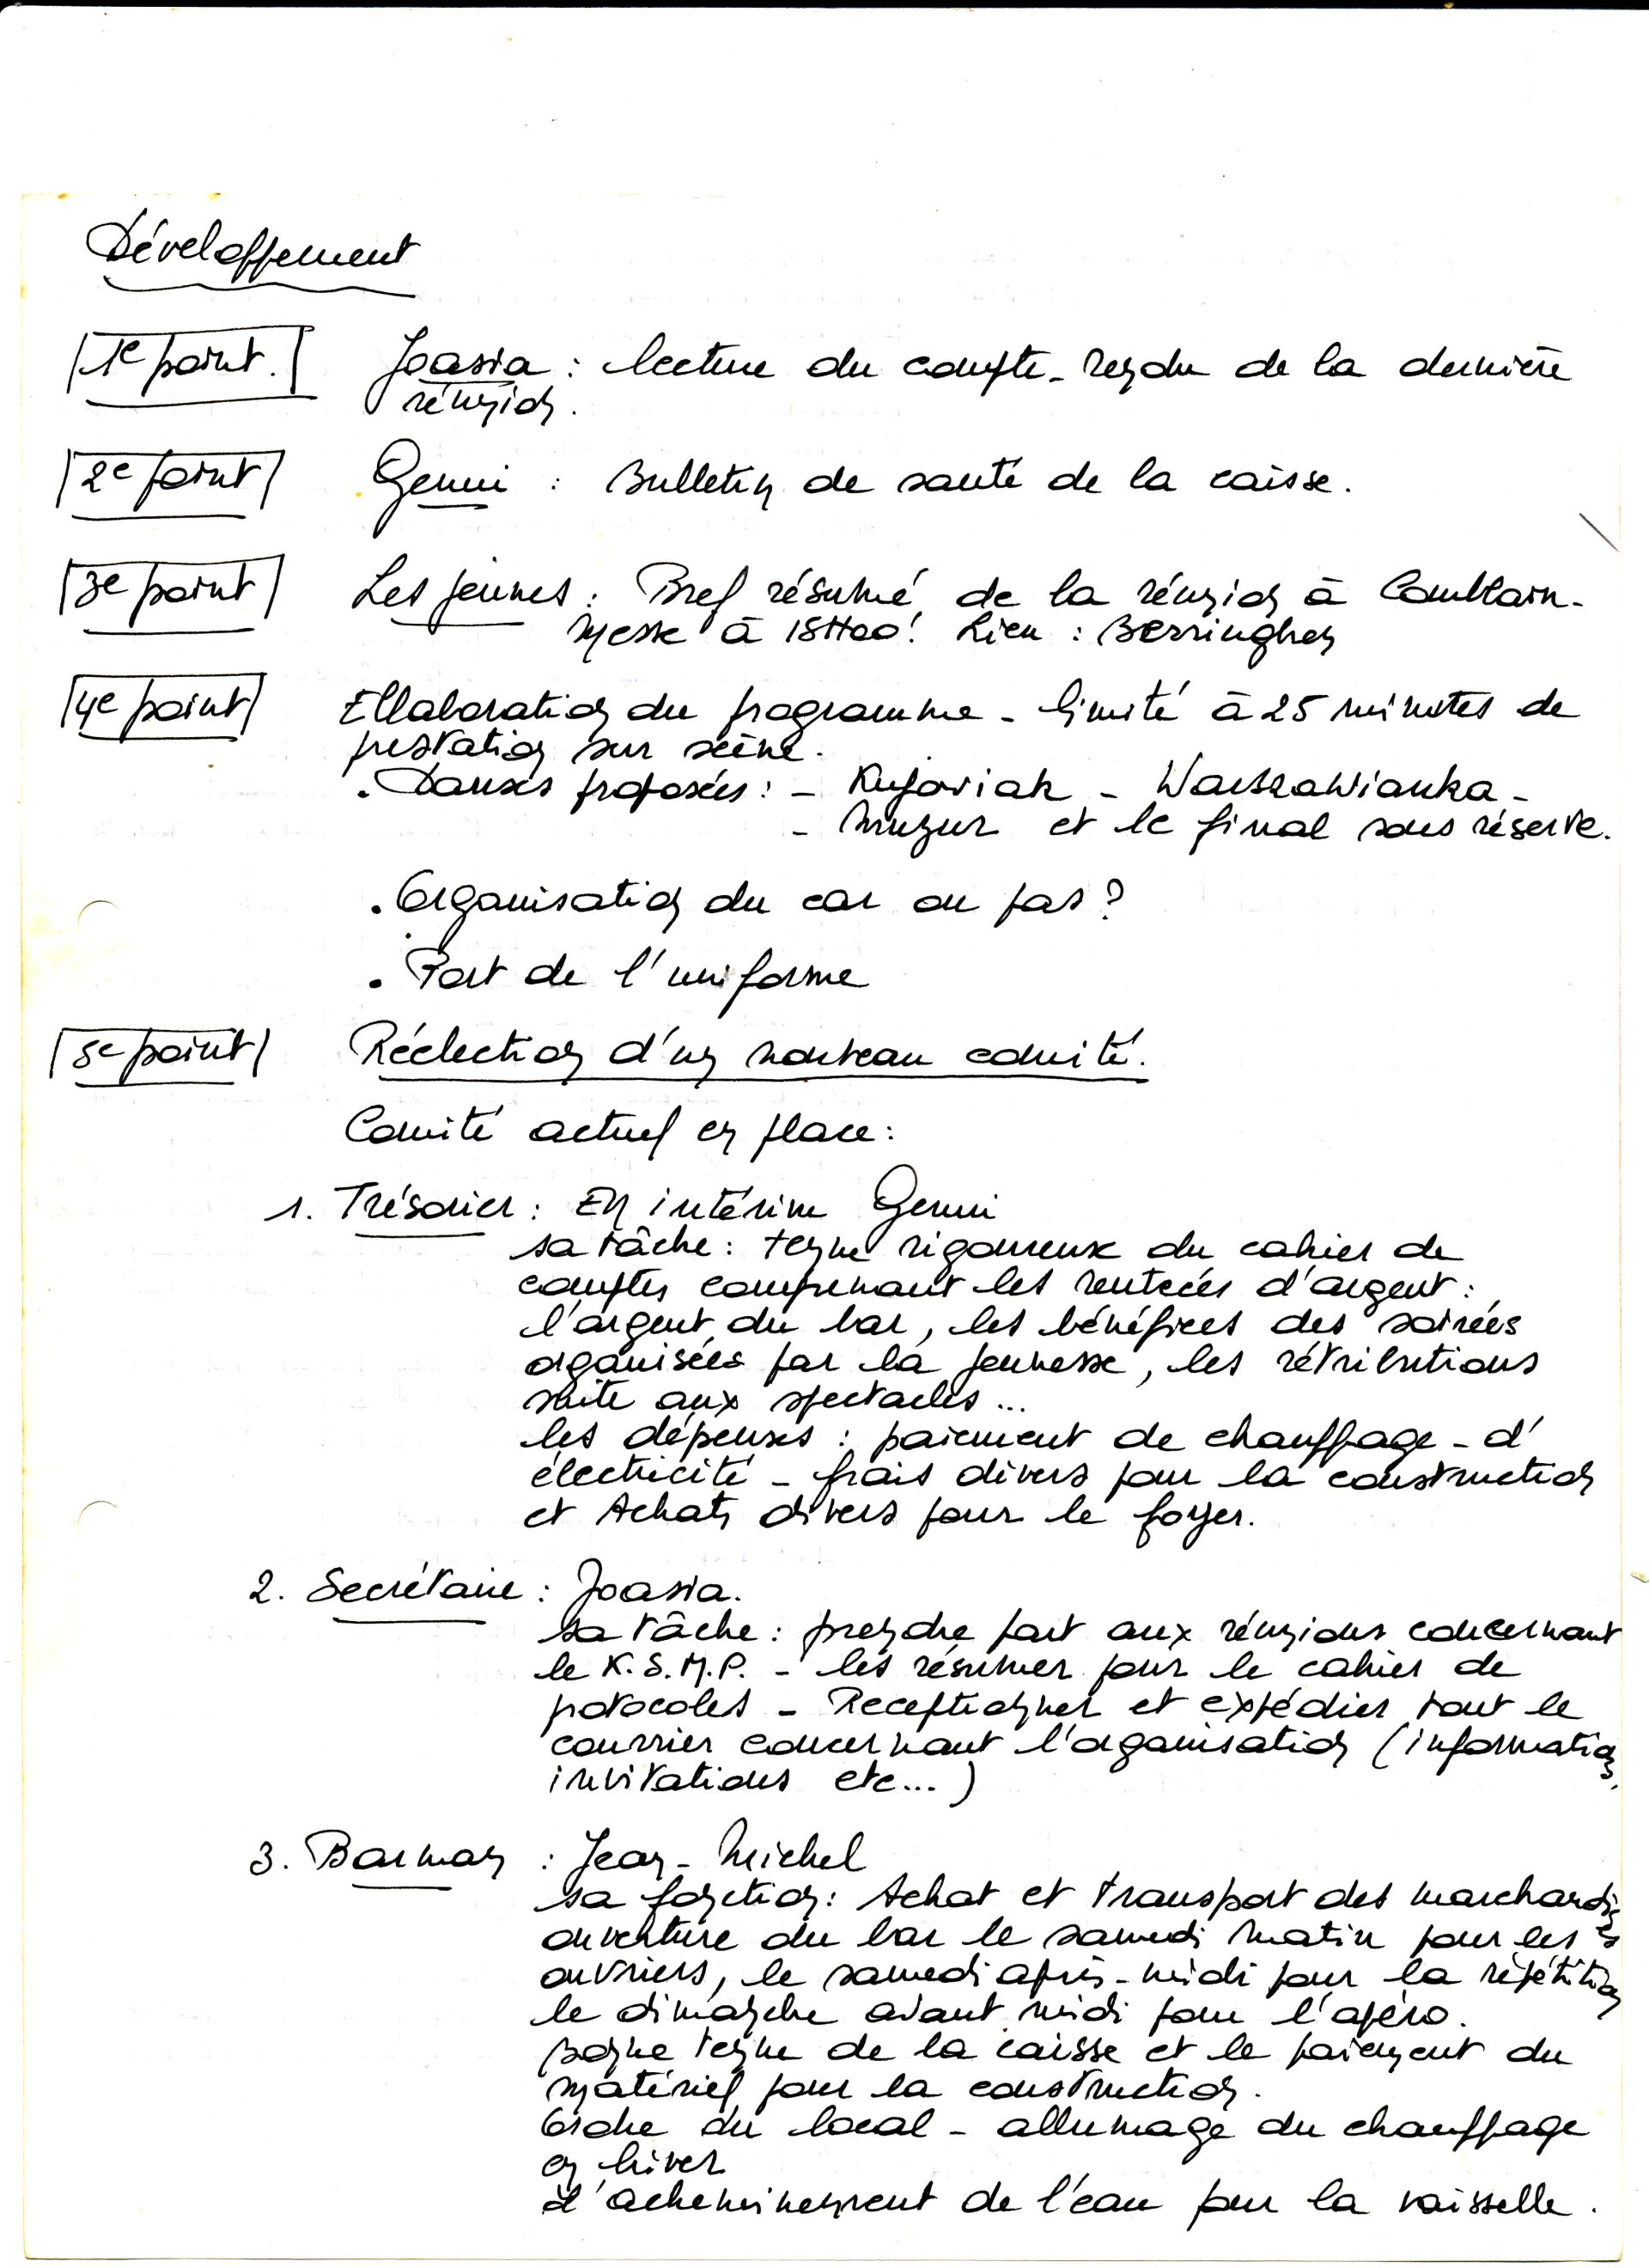 Développement
1e point. Joasia : lecture du compte-rendu de la dernière
réunion.
2e point Genui : Bulletin de santé de la caisse.
3e point Les jeunes : Bref résumé de la réunion à Comblain-
Messe à 15H00! Lieu : Berringhen
4e point Ellaboration du programme - limité à 25 minutes de
prestation sur scène.
. Danses proposées : - Kujaviak - Warszawianka -
- Mazur et le final sous réserve.
. Organisation du car ou pas ?
. Port de l'uniforme
5e point Réelection d'un nouveau comité.
Comité actuel en place :
1. Trésorier : En intérim Genui
sa tâche : tenue rigoureuse du cahier de
comptes comprenant les rentrées d'argent :
l'argent du bar, les bénéfices des soirées
organisées par la jeunesse, les rétributions
suite aux spectacles ...
les dépenses : paiement de chauffage - d'
électricité - frais divers pour la construction
et Achats divers pour le foyer.
2. Secrétaire : Joasia.
sa tâche : prendre part aux réunions concernant
le K.S.M.P. - les résumer pour le cahier de
protocoles - Receptionner et expédier tout le
courrier concernant l'organisation (information,
invitations etc...)
3. Barman : Jean-Michel
sa fonction : Achat et transport des marchandises
ouverture du bar le samedi matin pour les
ouvriers, le samedi après-midi pour la répétition
le dimanche avant midi pour l'apéro.
bonne tenue de la caisse et le paiement du
matériel pour la construction.
Ordre du local - allumage du chauffage
en hiver
d'acheminement de l'eau pour la vaisselle.